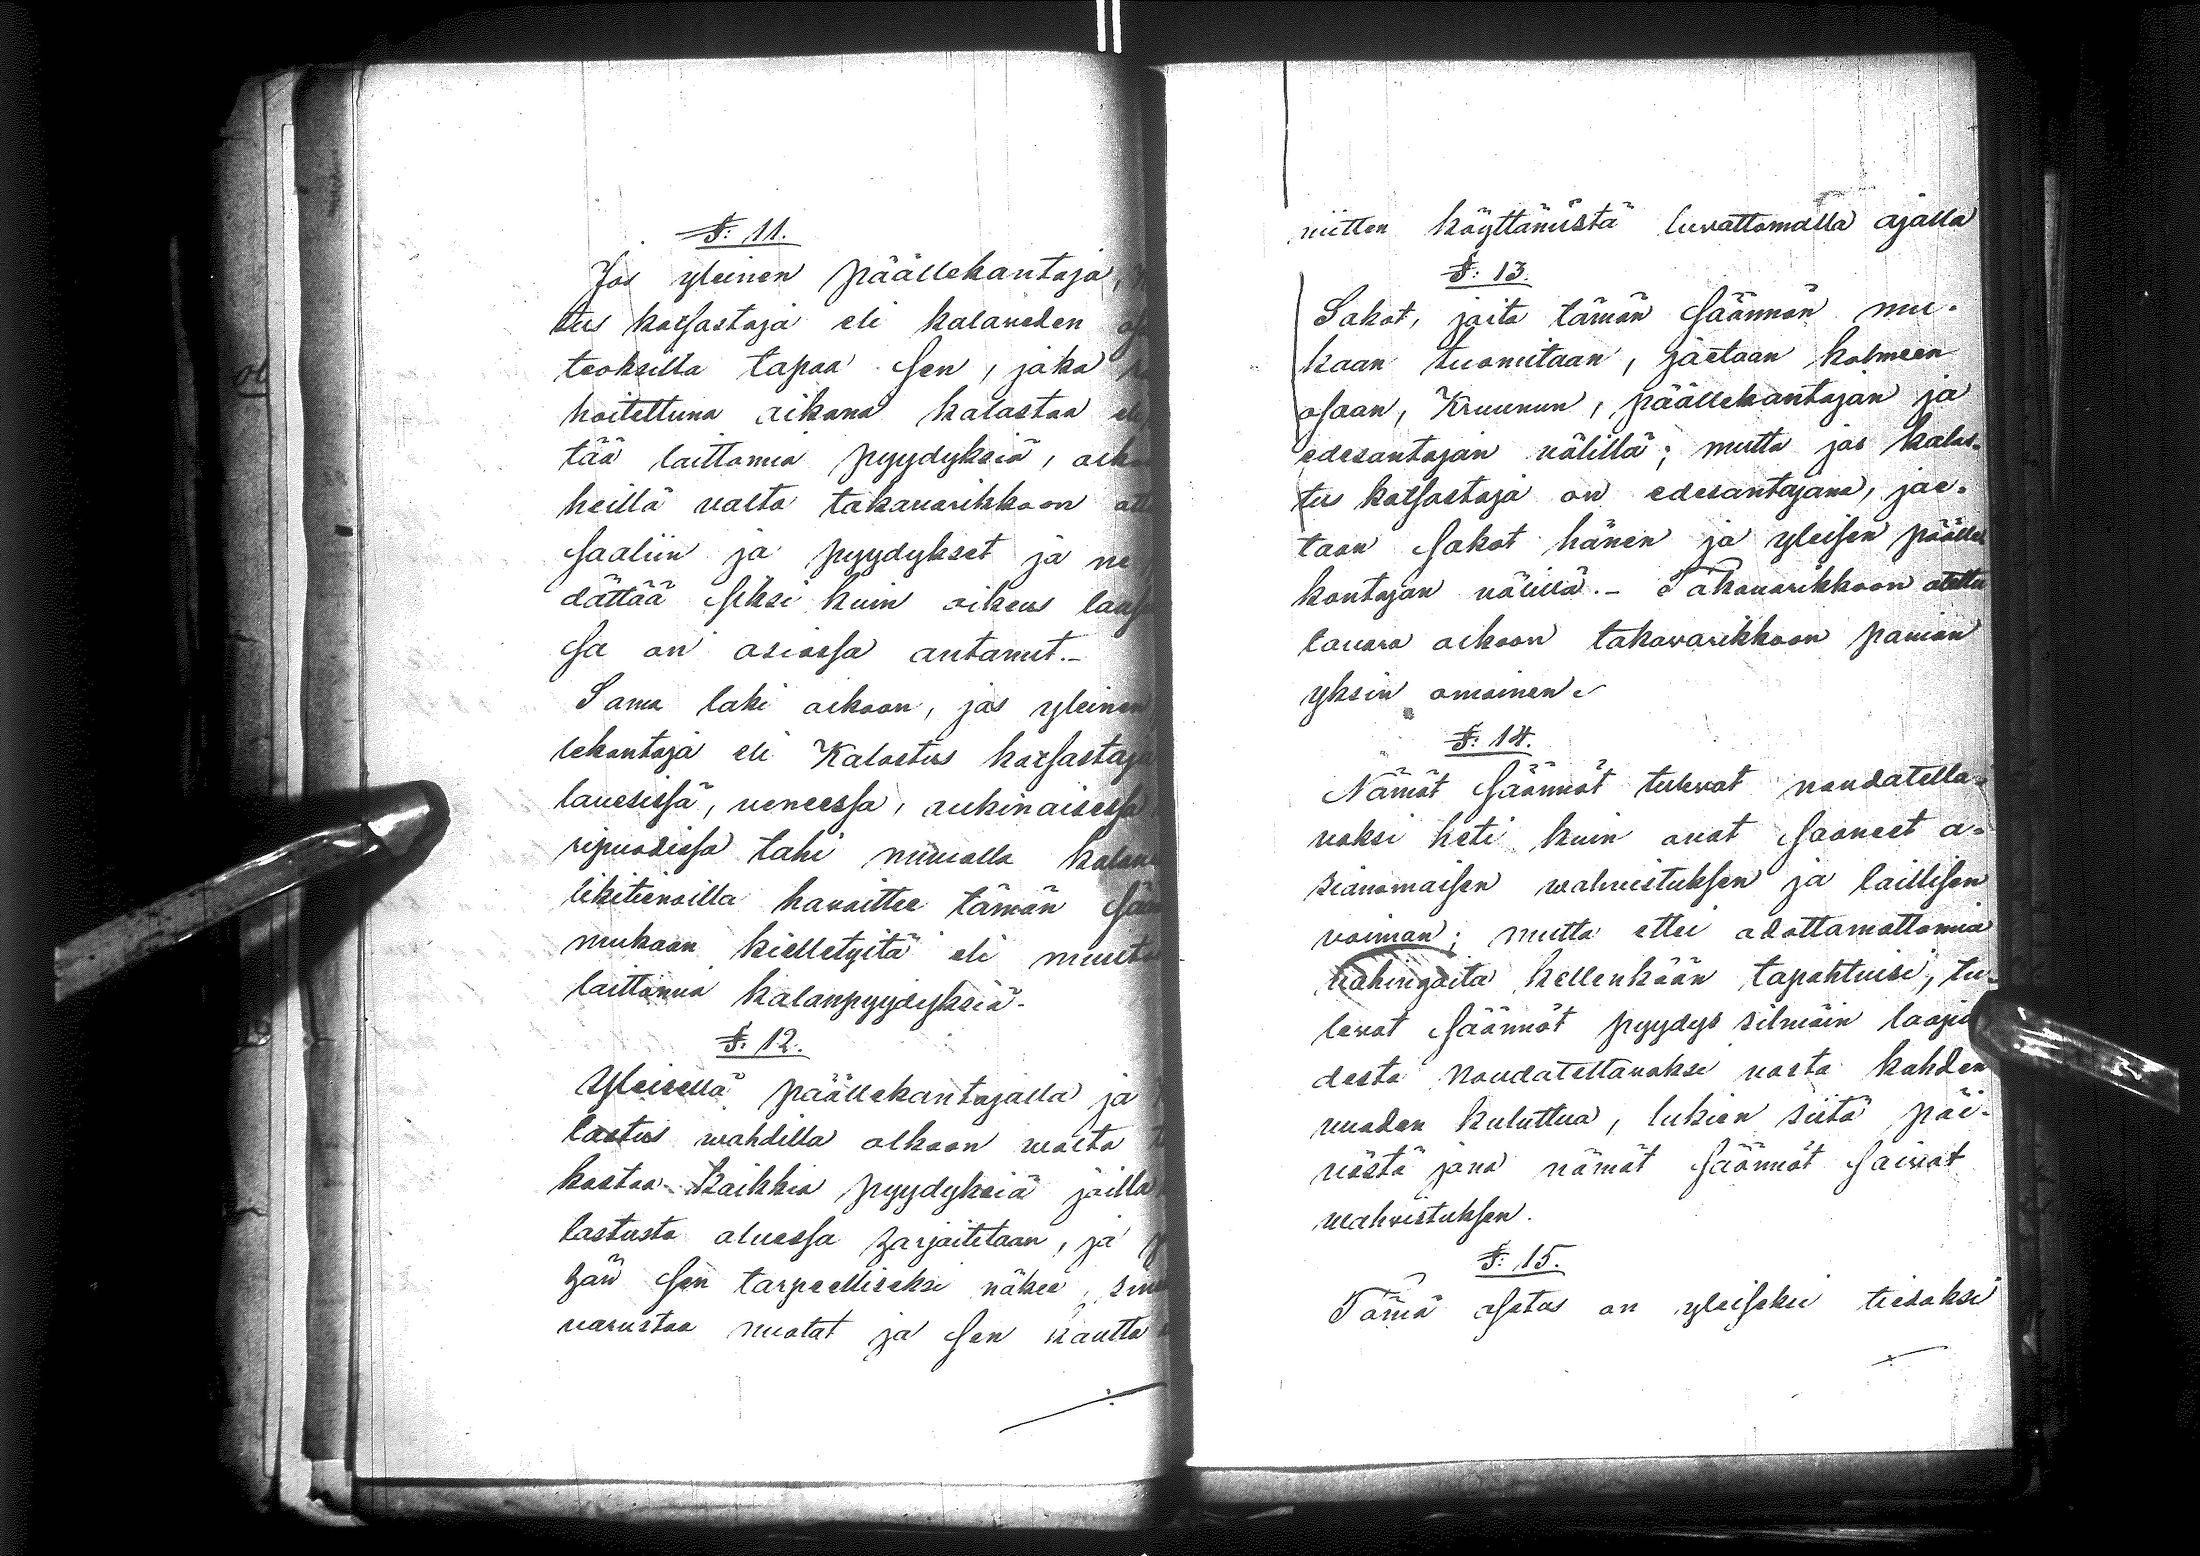 §: 11.
Jos yleinen päällekantaja,
tus katsastaja eli kalaveden
teoksilla tapaa sen, joka
hoitettuna aikana kalastaa
tää laittomia pyydyksiä,
heillä valta takavarikkoon
saaliin ja pyydykset ja
dättää siksi kuin oikeus
sa on asiassa antanut.-
Sama laki olkoon, jos yleinen
lekantaja eli Kalastus katsastaja
lauesissa, veneessa, aukinaisessa
ripuvissa tahi muualla
likitienoilla havaittee tämän
mukaan kielletyitä eli
laittomia kalanpyydyksiä.
§: 12.
Yleisellä päällekantajalla ja
lastus wahdilla olkoon walta
kastaa kaikkia pyydyksiä joilla
lastusta aluessa harjoitetaan, ja
hän sen tarpeelliseksi näkee,
varustaa nuotat ja sen kautta
niitten käyttämistä luvattomalla ajalla
§: 13.
Sakot, joita tämän säännön mu-
kaan tuomitaan, jaetaan kolmeen
osaan, Kruunun, päällekantajan ja
edesantajan välillä; mutta jos kalas-
tus katsastaja on edesantajana, jae-
taan sakot hänen ja yleisen päälle
kantajan välillä.- Takavarikkoon otettu
tavara olkoon takavarikkoon panian
yksin omainen.
§: 14.
Nämät säännöt tulevat noudatella-
vaksi heti kuin ovat saaneet a-
sianomaisen wahvistuksen ja laillisen
voiman; mutta ettei adottamattomia
vahingoita kellenkään tapahtuisi, tu-
levat säännöt pyydys silmäin laaju
desta noudatettavaksi vasta kahden
vuoden kuluttua, lukien siitä päi-
västä jona nämät säännöt saivat
wahvistuksen.
§: 15.
Tämä asetus on yleiseksi tiedoksi